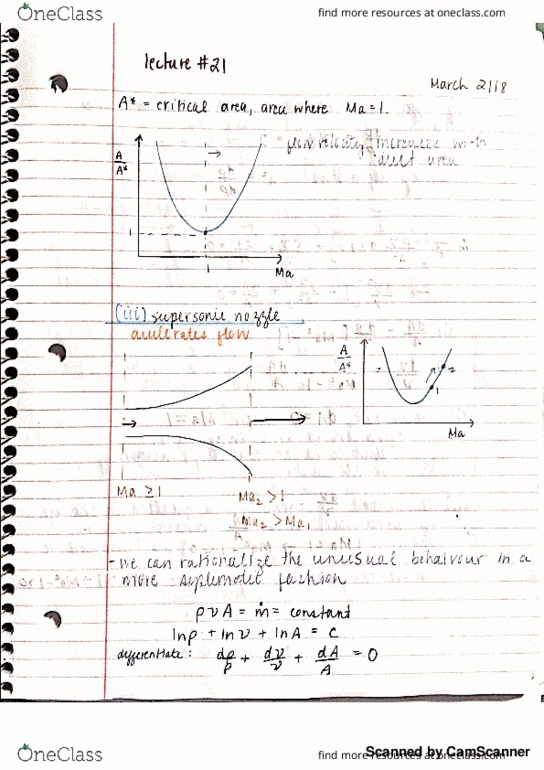 OneClass
find more resources at oneclass.com
lecture #21
March 21/18
A* = critical area, area where Ma=1.
A
A*
= flow velocity increases with
duct area
1
1
Ma
(iii) supersonic nozzle
acelerates flow
A
A*
2
1
Ma
Ma ≥1
Ma₂ >1
Ma₂ > Ma₁
- we can rationalize the unusual behavour in a
more systematic fashion
ρνA = ṁ = constant
lnρ + lnν + lnA = C
differentiate: dρ/ρ + dν/ν + dA/A = 0
Scanned by CamScanner
OneClass
find more resources at oneclass.com